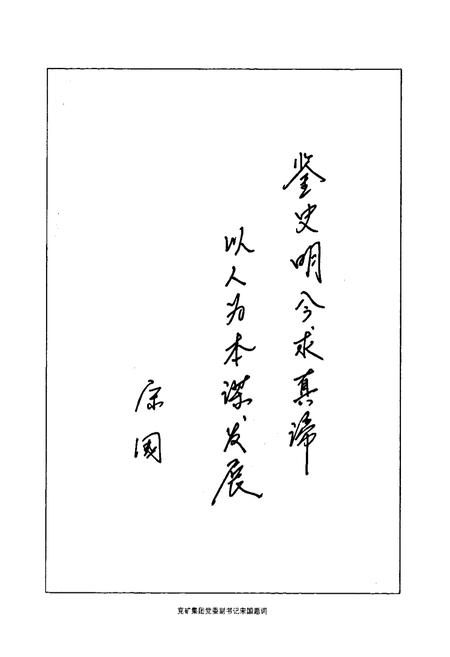 鉴史明今求真谛
以人为本谋发展
宋国
兖矿集团党委副书记宋国题词